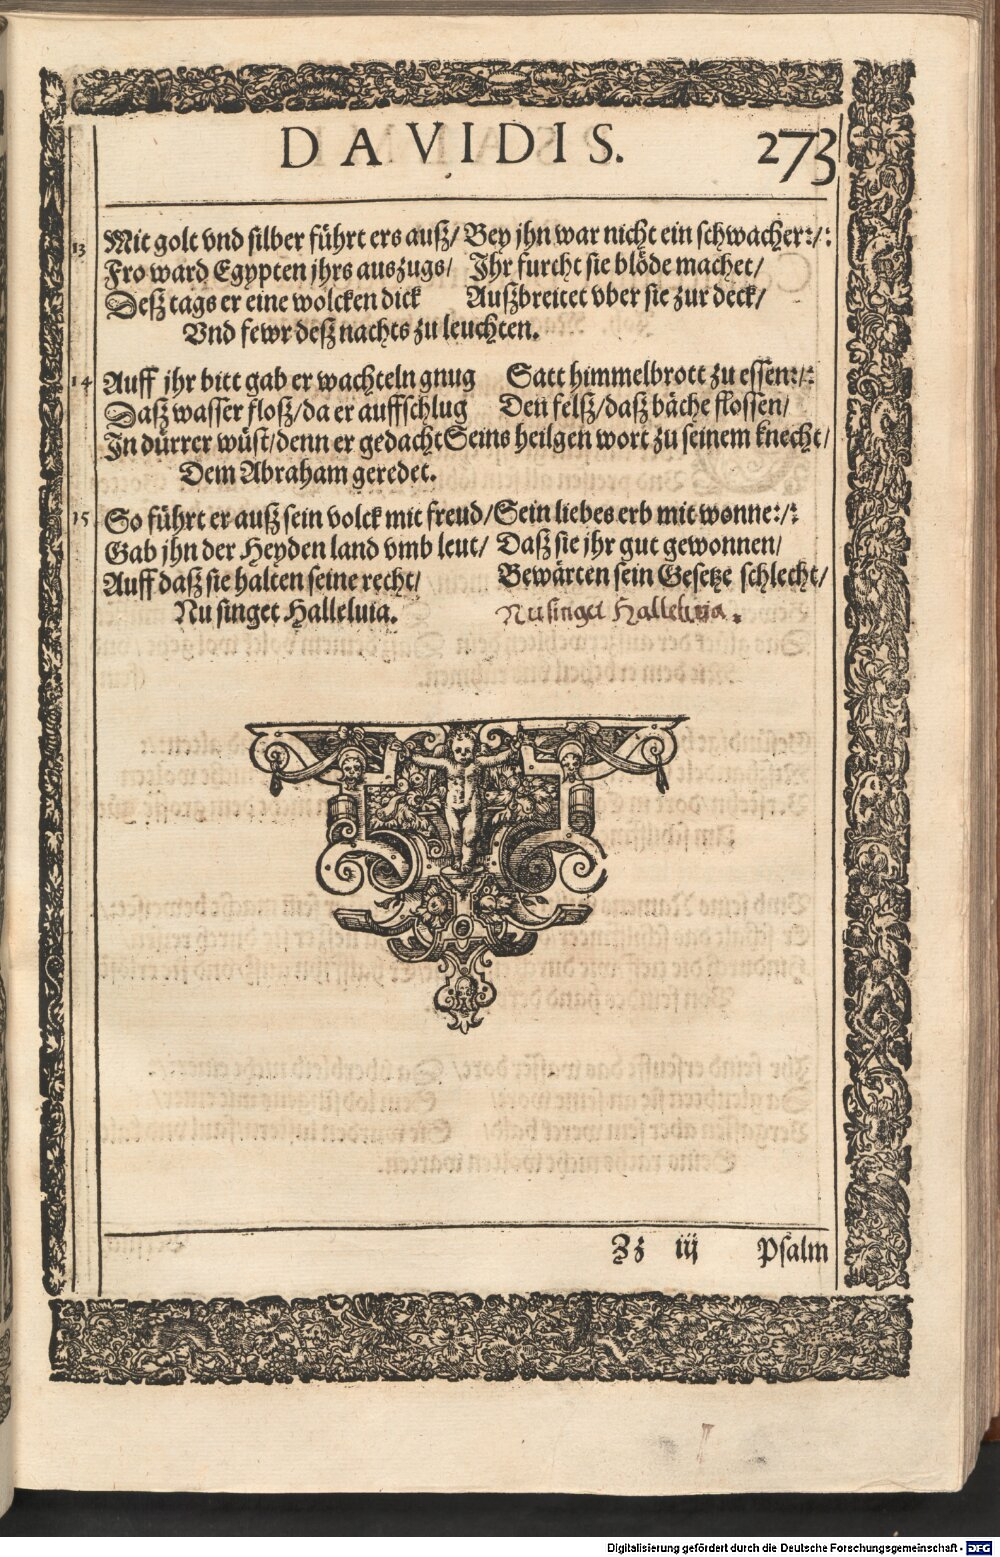 DAVIDIS. 273
13 Mit golt vnd silber führt ers auß/ Bey jhn war nicht ein schwacher:/:
Fro ward Egypten jhrs auszugs/ Ihr furcht sie blöde machet/
Deß tags er eine wolcken dick Außbreitet vber sie zur deck/
Vnd fewr deß nachts zu leuchten.
14 Auff jhr bitt gab er wachteln gnug Satt himmelbrott zu essen:/:
Daß wasser floß/ da er auffschlug Den felß/ daß bäche flossen/
In dürrer wüst/ denn er gedacht Seins heilgen wort zu seinem knecht/
Dem Abraham geredet.
15 So führt er auß sein volck mit freud/ Sein liebes erb mit wonne:/:
Gab jhn der Heyden land vmb leut/ Daß sie jhr gut gewonnen/
Auff daß sie halten seine recht/ Bewärten sein Gesetze schlecht/
Nu singet Halleluia. Nu singet Halleluia.
Zz iij Psalm
Digitalisierung gefördert durch die Deutsche Forschungsgemeinschaft - DFG